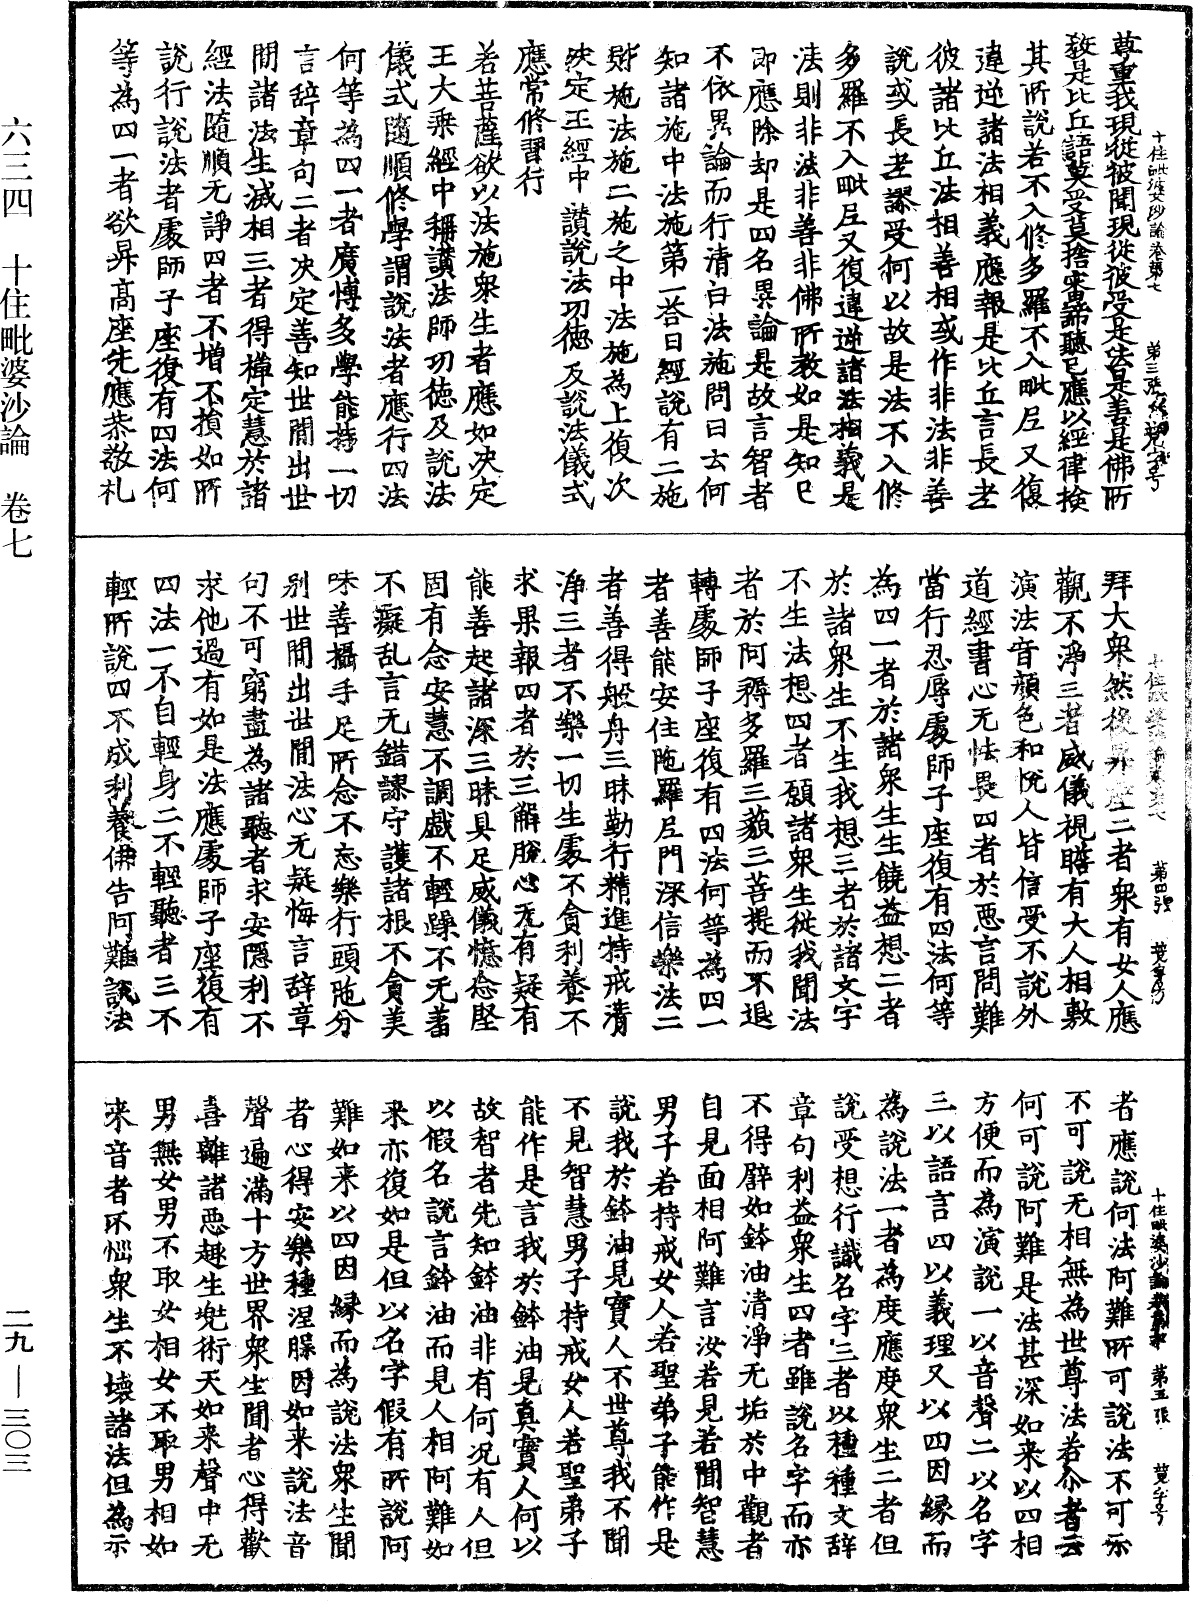 六三四　十住毗婆沙論　卷七
二九—三〇三
十住毗婆沙論卷第七　第三張
尊重我現從彼聞現從彼受是法是善是佛所
教是比丘語莫受莫捨審諦聽已應以經律撿
其所說若不入修多羅不入毗尼又復
違逆諸法相義應報是比丘言長老
彼諸比丘法相善相或作非法非善
說或長老謬受何以故是法不入修
多羅不入毗尼又復違逆諸法相義是
法則非法非善非佛所教如是知已
即應除却是四名異論是故言智者
不依異論而行清白法施問曰云何
知諸施中法施第一荅曰經說有二施
財施法施二施之中法施為上復次
決定王經中讃說法功德及說法儀式
應常修習行
若菩薩欲以法施衆生者應如決定
王大乘經中稱讃法師功德及說法
儀式隨順修學謂說法者應行四法
何等為四一者廣博多學能持一切
言辭章句二者決定善知世間出世
間諸法生滅相三者得禪定慧於諸
經法隨順无諍四者不增不損如所
說行說法者處師子座復有四法何
等為四一者欲昇高座先應恭敬礼
第四張
拜大衆然後昇座二者衆有女人應
觀不淨三者威儀視瞻有大人相敷
演法音顏色和悅人皆信受不說外
道經書心无怯畏四者於惡言問難
當行忍辱處師子座復有四法何等
為四一者於諸衆生生饒益想二者
於諸衆生不生我想三者於諸文字
不生法想四者願諸衆生從我聞法
者於阿耨多羅三藐三菩提而不退
轉處師子座復有四法何等為四一
者善能安住陁羅尼門深信樂法二
者善得般舟三昧勤行精進持戒清
淨三者不樂一切生處不貪利養不
求果報四者於三解脫心无有疑有
能善起諸深三昧具足威儀憶念堅
固有念安慧不調戲不輕躁不无羞
不癡乱言无錯謬守護諸根不貪美
味善攝手足所念不忘樂行頭陁分
別世間出世間法心无疑悔言辭章
句不可窮盡為諸聽者求安隱利不
求他過有如是法應處師子座復有
四法一不自輕身二不輕聽者三不
輕所說四不成利養佛告阿難說法
十住毗婆沙論　第五張
者應說何法阿難所可說法不可示
不可說无相無為世尊法若尒者云
何可說阿難是法甚深如來以四相
方便而為演說一以音聲二以名字
三以語言四以義理又以四因緣而
為說法一者為度應度衆生二者但
說受想行識名字三者以種種文辭
章句利益衆生四者雖說名字而亦
不得譬如鉢油清淨无垢於中觀者
自見面相阿難言汝若見若聞智慧
男子若持戒女人若聖弟子能作是
說我於鉢油見實人不世尊我不聞
不見智慧男子持戒女人若聖弟子
能作是言我於鉢油見真實人何以
故智者先知鉢油非有何況有人但
以假名說言鉢油而見人相阿難如
來亦復如是但以名字假有所說阿
難如來以四因緣而為說法衆生聞
者心得安樂種涅槃因如來說法音
聲遍滿十方世界衆生聞者心得歡
喜離諸惡趣生兜術天如來聲中无
男無女男不取女相女不取男相如
來音者不惱衆生不壞諸法但為示